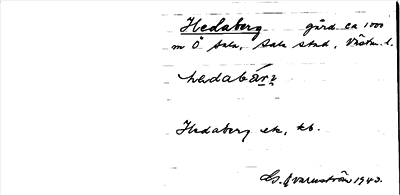 Hedaberg gård ca 1000
m Ö Sala, Sala stad, Västm. l.
hedabärj
Hedaberg ek, kb.
Qvarnström 1943.